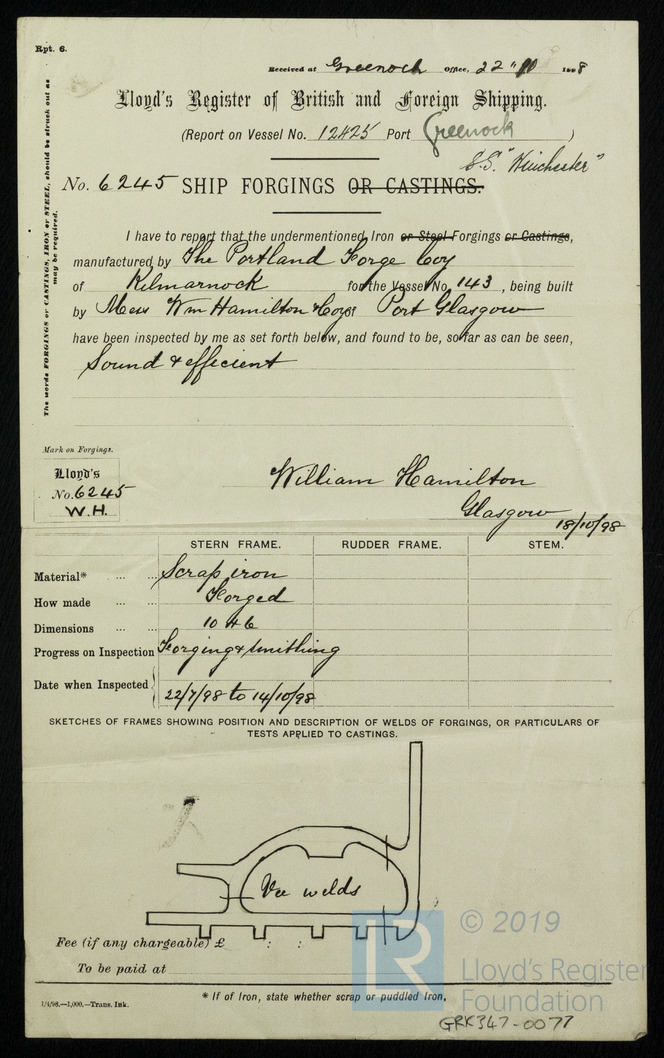 Rpt. 6.
Received at Greenock Office, 22 " 10 1898
Lloyd's Register of British and Foreign Shipping.
(Report on Vessel No. 12425 Port Greenock )
S.S. "Winchester"
No. 6245 SHIP FORGINGS OR CASTINGS.
The words FORGINGS or CASTINGS, IRON or STEEL, should be struck out as may be required.
I have to report that the undermentioned Iron or Steel Forgings or Castings,
manufactured by The Portland Forge Coy
of Kilmarnock for the Vessel No. 143, being built
by Mess Wm Hamilton & Coys Port Glasgow
have been inspected by me as set forth below, and found to be, so far as can be seen,
Sound & efficient
Mark on Forgings.
Lloyd's
No. 6245
W.H.
William Hamilton
Glasgow 18/10/98
STERN FRAME. RUDDER FRAME. STEM.
Material* ... ... Scrap iron
How made ... ... Forged
Dimensions ... ... 10 × 6
Progress on Inspection Forging & smithing
Date when Inspected 22/7/98 to 14/10/98
SKETCHES OF FRAMES SHOWING POSITION AND DESCRIPTION OF WELDS OF FORGINGS, OR PARTICULARS OF
TESTS APPLIED TO CASTINGS.
Vee welds
Fee (if any chargeable) £ : :
To be paid at
* If of Iron, state whether scrap or puddled Iron.
1/4/98.—1,000.—Trans. Ink.
LR © 2019
Lloyd's Register
Foundation
GRK347-0077